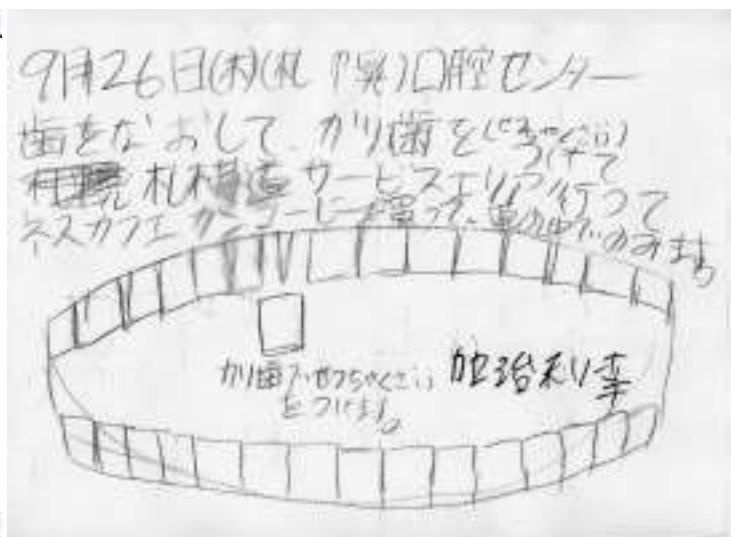 9月26日(木)(札幌)口腔センター
歯をなおして、かり歯を(せっちゃくざい)つけて
札樽道サービスエリア行って
ネスカフェカンコーヒー買って、車の中でのみます
かり歯をせっちゃくざい
をつけます。